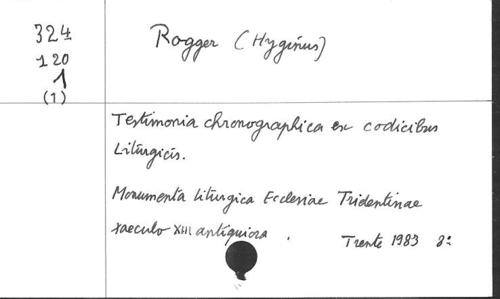 324
120
1
(1)
Rogger (Hyginus)
Testimonia chronographica ex codicibus
Liturgicis.
Monumenta liturgica Ecclesiae Tridentinae
saeculo XIII antiquiora .
Trente 1983 8º